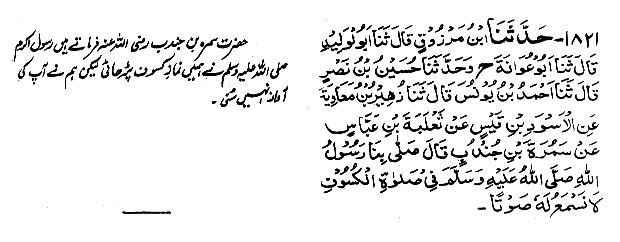 ۱۸۲۱- حَدَّثَنَا ابْنُ مَرْزُوْقٍ قَالَ ثَنَا اَبُو لْوَلِيْدِ
قَالَ ثَنَا اَبُوْعَوَانَةَ ح وَحَدَّثَنَا حُسَيْنُ بْنُ نَصْرٍ
قَالَ ثَنَا اَحْمَدُ بْنُ يُوْنُسَ قَالَ ثَنَا زُهَيْرُ بْنُ مُعَاوِيَةَ
عَنِ الْاَسْوَدِ بْنِ قَيْسٍ عَنْ ثَعْلَبَةَ بْنِ عَبَّاسٍ
عَنْ سَمُرَةَ بْنِ جُنْدُبٍ قَالَ صَلّٰى بِنَا رَسُوْلُ
اللّٰهِ صَلَّى اللّٰهُ عَلَيْهِ وَسَلَّمَ فِيْ صَلٰوةِ الْكُسُوْفِ
لَا نَسْمَعُ لَهٗ صَوْتًا -
حضرت سمرہ بن جندب رضی اللہ عنہ فرماتے ہیں رسول اکرم
صلی اللہ علیہ وسلم نے ہمیں نماز کسوف پڑھائی لیکن ہم نے آپ کی
آواز نہیں سنی ۔